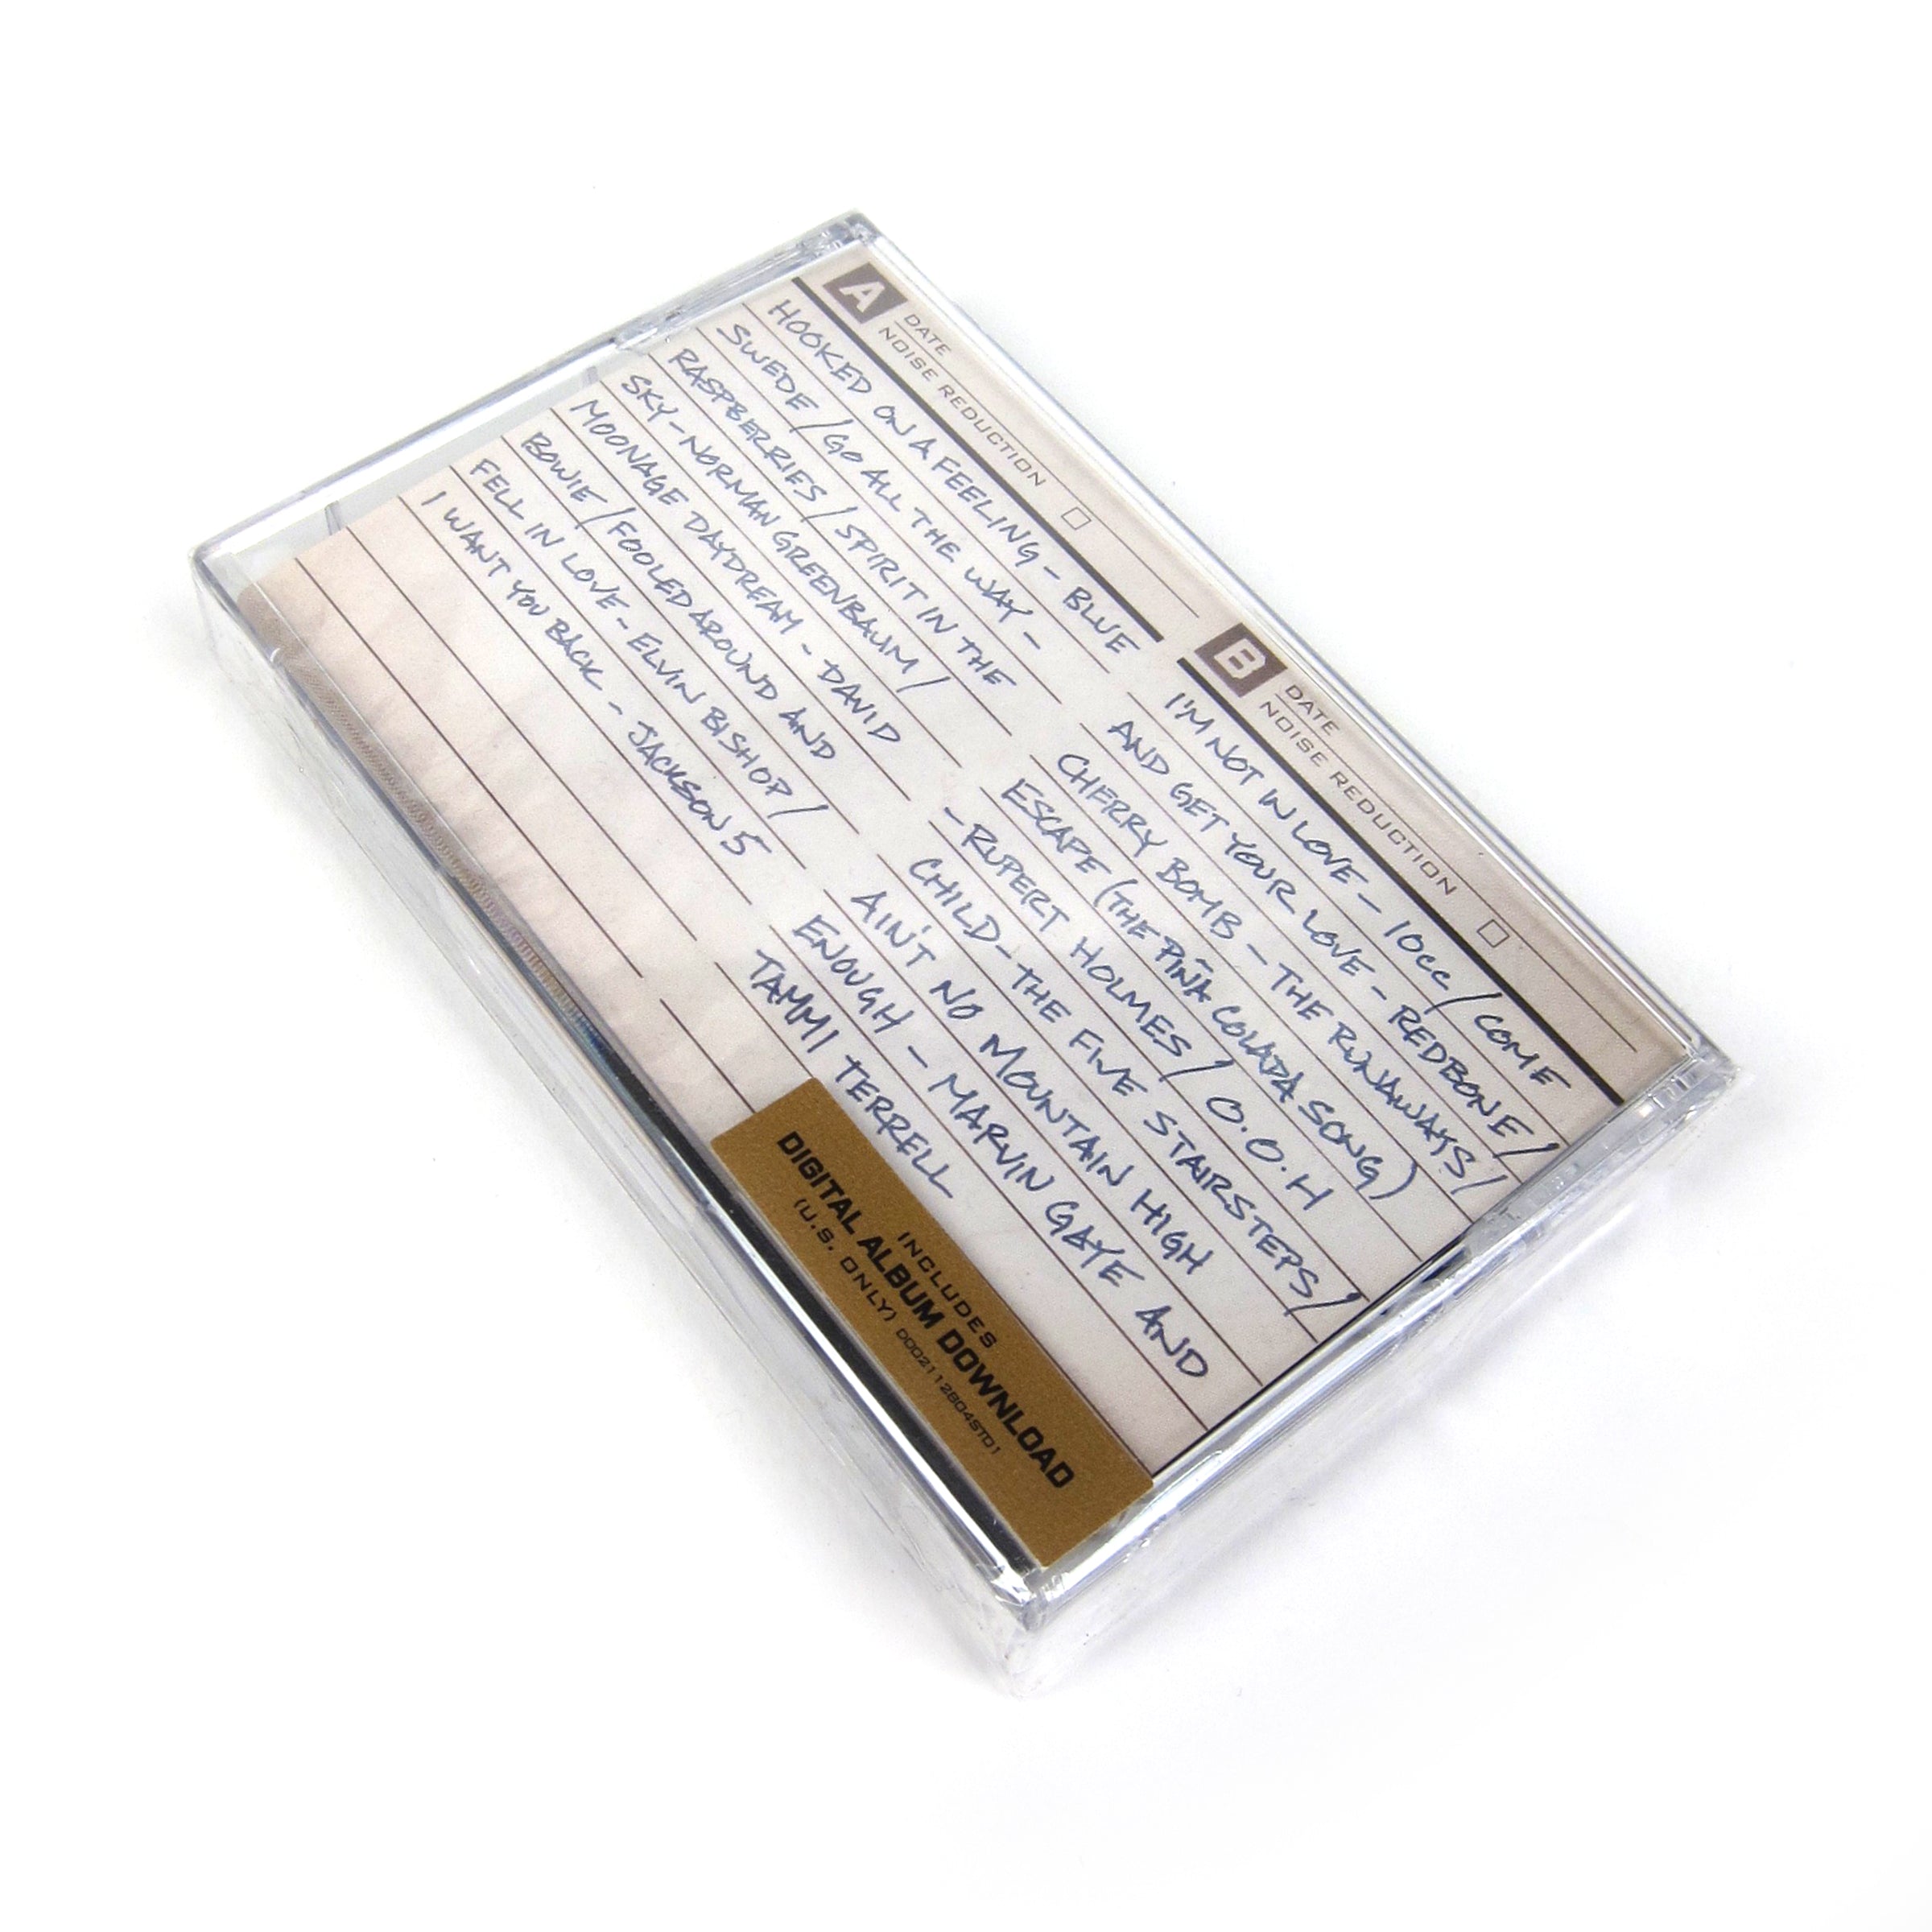 A
DATE
NOISE REDUCTION
HOOKED ON A FEELING - BLUE
SWEDE / GO ALL THE WAY -
RASPBERRIES / SPIRIT IN THE
SKY - NORMAN GREENBAUM /
MOONAGE DAYDREAM - DAVID
BOWIE / FOOLED AROUND AND
FELL IN LOVE - ELVIN BISHOP /
I WANT YOU BACK - JACKSON 5
B
DATE
NOISE REDUCTION
I'M NOT IN LOVE - 10cc / COME
AND GET YOUR LOVE - REDBONE /
CHERRY BOMB - THE RUNAWAYS /
ESCAPE (THE PIÑA COLADA SONG)
- RUPERT HOLMES / O.O.H
CHILD - THE FIVE STAIRSTEPS /
AIN'T NO MOUNTAIN HIGH
ENOUGH - MARVIN GAYE AND
TAMMI TERRELL
INCLUDES
DIGITAL ALBUM DOWNLOAD
(U.S. ONLY) D002112804STD1